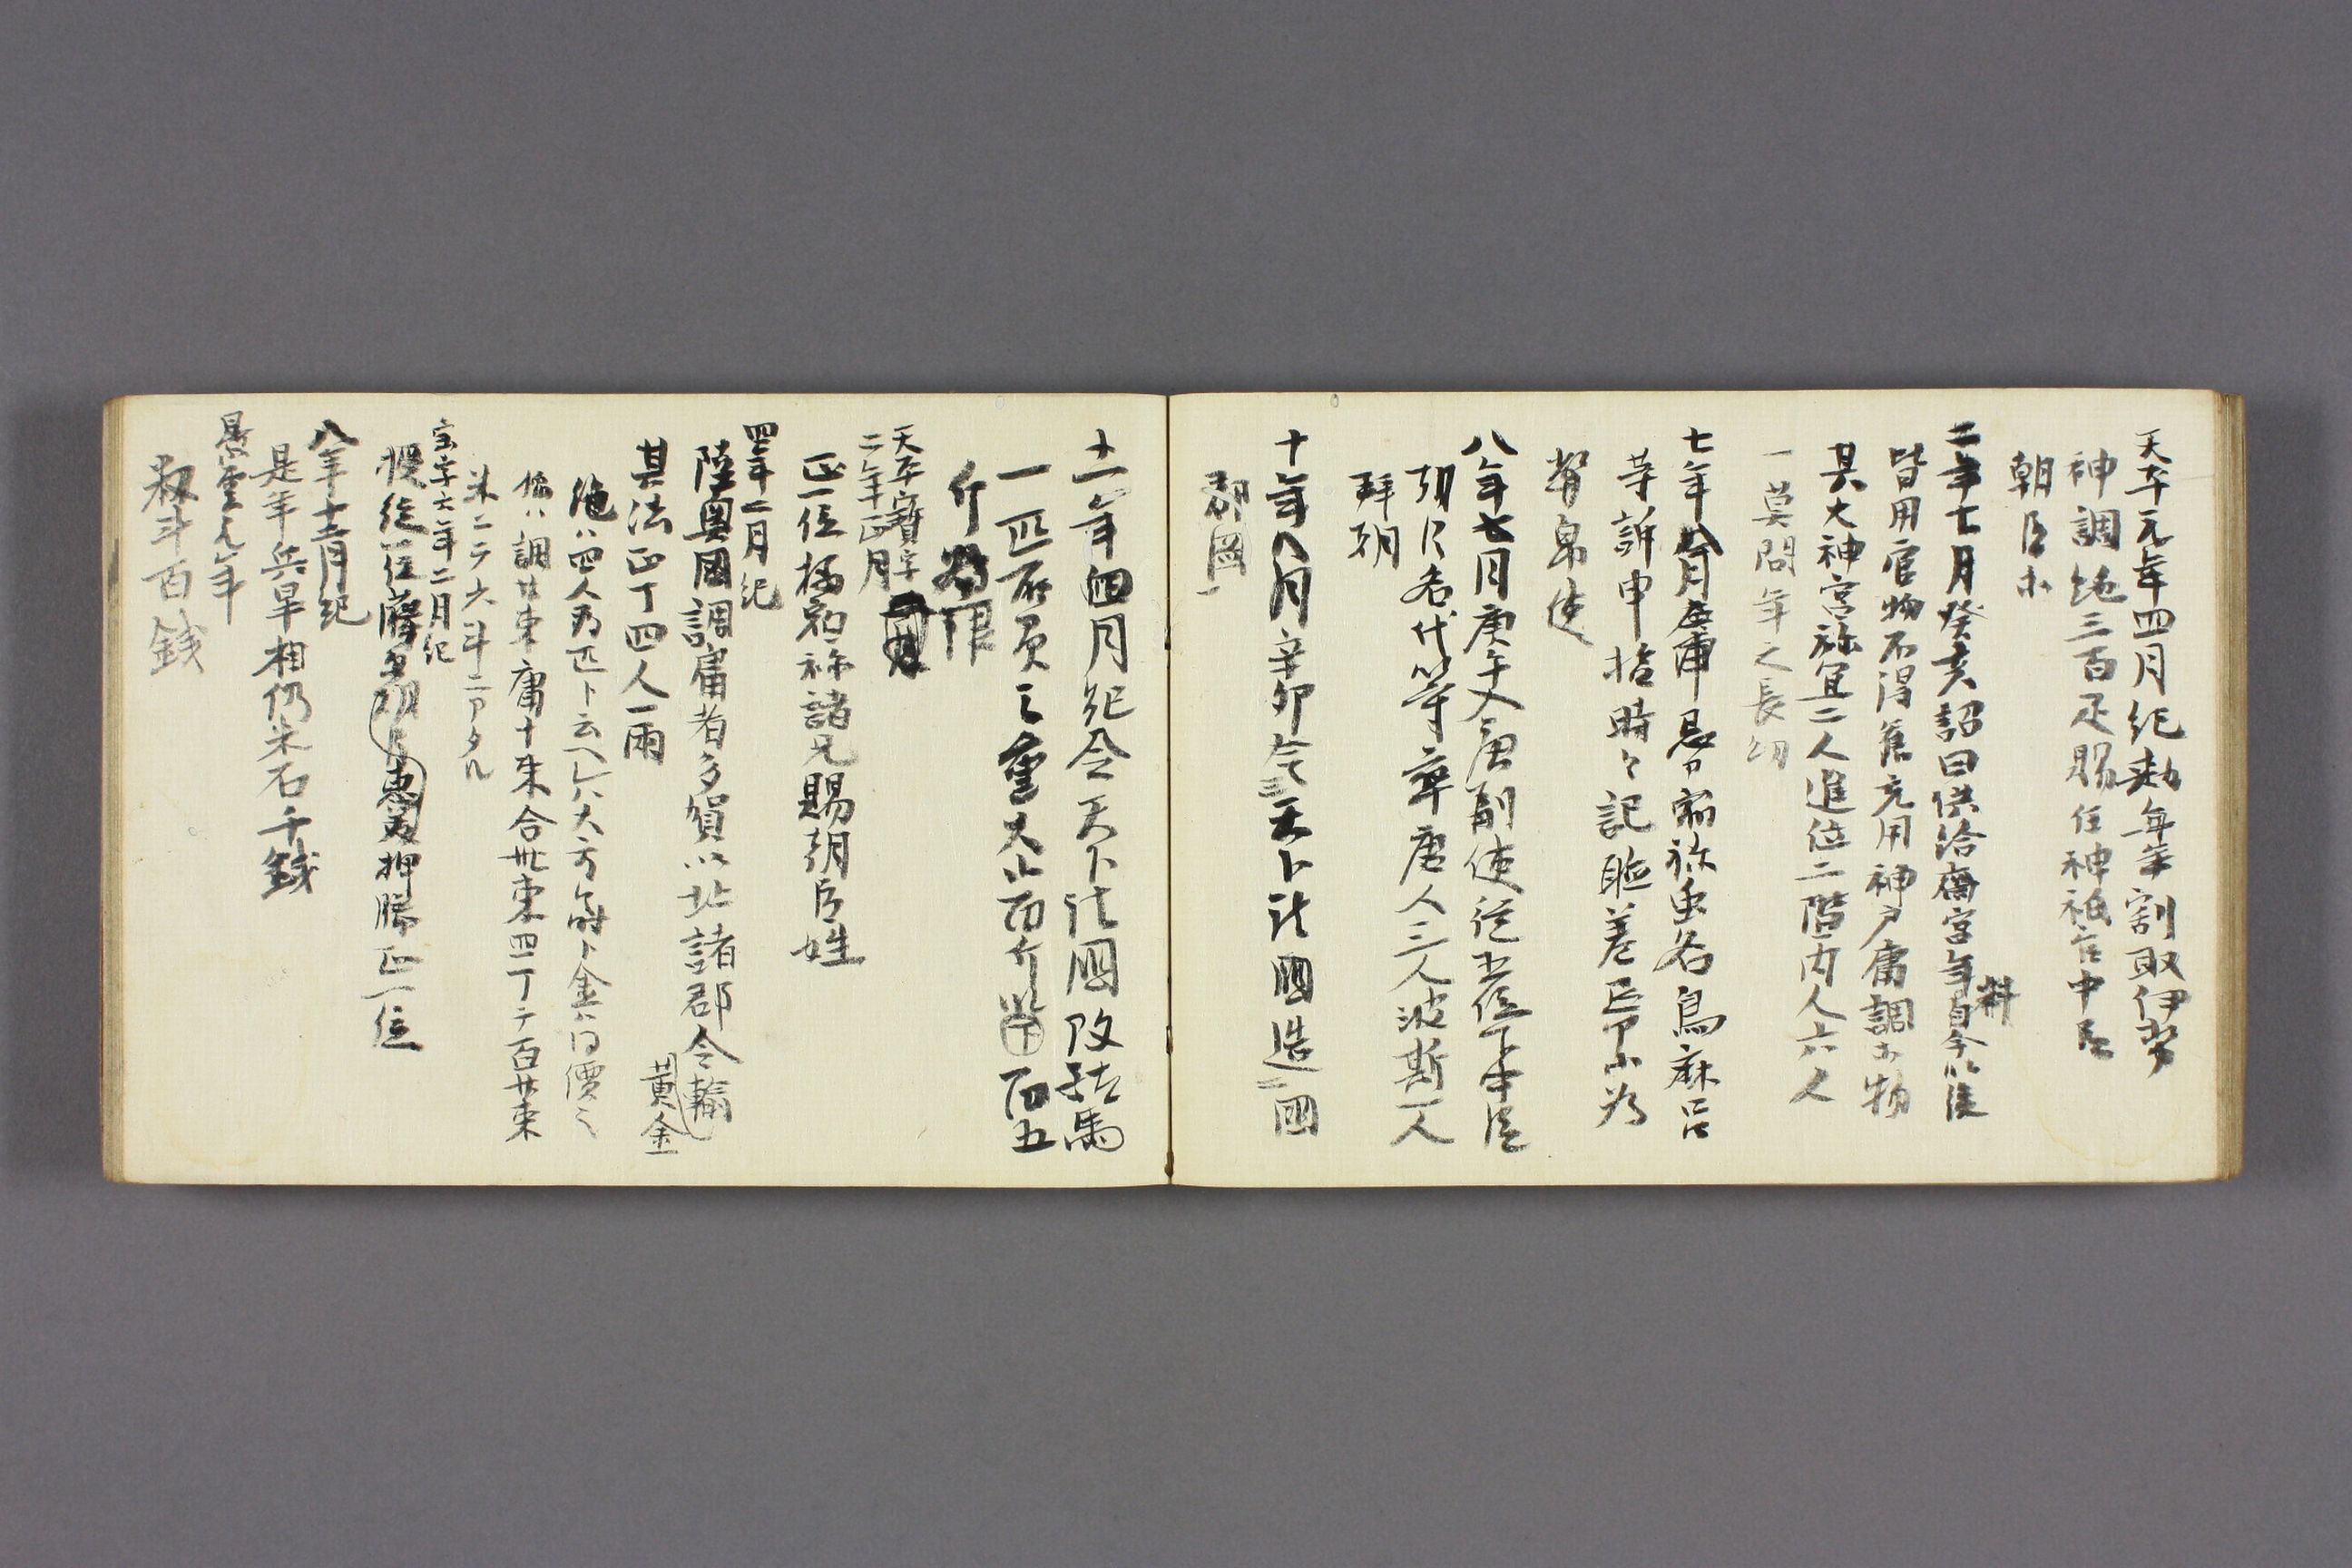 天平元年四月紀勅毎年割取伊勢
神調絁三百疋賜任神祇官中臣
朝臣ホ
二年七月癸亥詔曰供給齋宮年料自今以後
皆用官物不得舊充用神戸庸調ホ物
其大神宮祢宜二人進位二階内人六人
一莫問年之長幼
七年八月 忌寸 祢虫名鳥麻呂
等訴申 時々記 差 ホ為
幣帛使
八年七月庚午入唐副使従五位下中臣
朝臣名代等率唐人三人波斯一人
拝朝
十年八月辛卯令天下諸國造國
郡圖
十一年四月紀令天下諸國改駄馬
一匹所負之重大二百斤 百五
斤為限
天平寶字
二年正月
正一位橘宿祢諸兄賜朝臣姓
四年二月紀
陸奥國調庸者多賀以北諸郡令輸黄金
其法正丁四人一両
絁ハ四人為匹ト云ヘハ大方 ト金ハ同價ニ
ハ調廿束庸十束合卅束四丁テ百廿束
米二テ六斗ニアタル
宝字六年二月紀
授従一位藤 朝臣恵美押勝正一位
八年十二月紀
是年兵旱相仍米石千銭
景雲元年
斗百銭